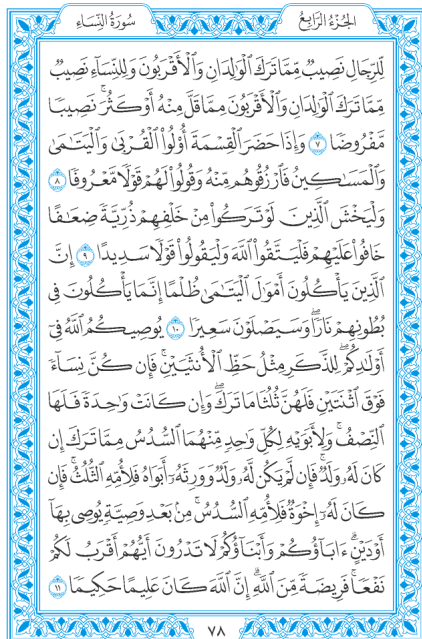 سُورَةُ النِّسَاءِ
الجُزْءُ الرَّابِعُ
لِّلرِّجَالِ نَصِيبٌ مِّمَّا تَرَكَ الْوَٰلِدَانِ وَالْأَقْرَبُونَ وَلِلنِّسَاءِ نَصِيبٌ
مِّمَّا تَرَكَ الْوَٰلِدَانِ وَالْأَقْرَبُونَ مِمَّا قَلَّ مِنْهُ أَوْ كَثُرَ ۚ نَصِيبًا
مَّفْرُوضًا ٧ وَإِذَا حَضَرَ الْقِسْمَةَ أُو۟لُوا۟ الْقُرْبَىٰ وَالْيَتَٰمَىٰ
وَالْمَسَٰكِينُ فَارْزُقُوهُم مِّنْهُ وَقُولُوا۟ لَهُمْ قَوْلًا مَّعْرُوفًا ٨
وَلْيَخْشَ الَّذِينَ لَوْ تَرَكُوا۟ مِنْ خَلْفِهِمْ ذُرِّيَّةً ضِعَٰفًا
خَافُوا۟ عَلَيْهِمْ فَلْيَتَّقُوا۟ اللَّهَ وَلْيَقُولُوا۟ قَوْلًا سَدِيدًا ٩ إِنَّ
الَّذِينَ يَأْكُلُونَ أَمْوَٰلَ الْيَتَٰمَىٰ ظُلْمًا إِنَّمَا يَأْكُلُونَ فِى
بُطُونِهِمْ نَارًا ۖ وَسَيَصْلَوْنَ سَعِيرًا ١٠ يُوصِيكُمُ اللَّهُ فِىٓ
أَوْلَٰدِكُمْ ۖ لِلذَّكَرِ مِثْلُ حَظِّ الْأُنثَيَيْنِ ۚ فَإِن كُنَّ نِسَآءً
فَوْقَ اثْنَتَيْنِ فَلَهُنَّ ثُلُثَا مَا تَرَكَ ۖ وَإِن كَانَتْ وَٰحِدَةً فَلَهَا
النِّصْفُ ۚ وَلِأَبَوَيْهِ لِكُلِّ وَٰحِدٍ مِّنْهُمَا السُّدُسُ مِمَّا تَرَكَ إِن
كَانَ لَهُۥ وَلَدٌ ۚ فَإِن لَّمْ يَكُن لَّهُۥ وَلَدٌ وَوَرِثَهُۥٓ أَبَوَاهُ فَلِأُمِّهِ الثُّلُثُ ۚ فَإِن
كَانَ لَهُۥٓ إِخْوَةٌ فَلِأُمِّهِ السُّدُسُ ۚ مِنۢ بَعْدِ وَصِيَّةٍ يُوصِى بِهَآ
أَوْ دَيْنٍ ۗ ءَابَآؤُكُمْ وَأَبْنَآؤُكُمْ لَا تَدْرُونَ أَيُّهُمْ أَقْرَبُ لَكُمْ
نَفْعًا ۚ فَرِيضَةً مِّنَ اللَّهِ ۗ إِنَّ اللَّهَ كَانَ عَلِيمًا حَكِيمًا ١١
٧٨